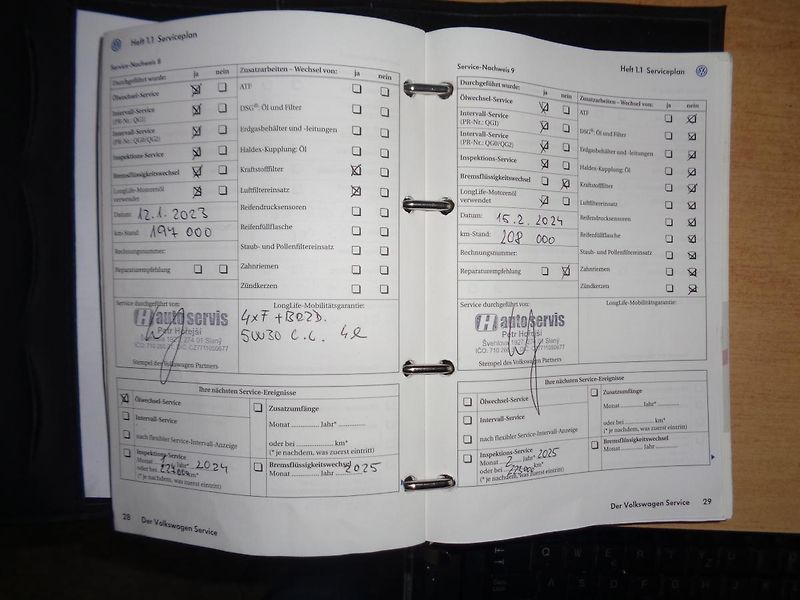 Heft 1.1 Serviceplan
Service-Nachweis 8
Durchgeführt wurde: ja nein
Ölwechsel-Service
Intervall-Service
(PR-Nr.: QG1)
Intervall-Service
(PR-Nr.: QG0/QG2)
Inspektions-Service
Bremsflüssigkeitswechsel
LongLife-Motorenöl
verwendet
Datum: 12.1.2023
km-Stand: 197 000
Rechnungsnummer:
Reparaturempfehlung
Zusatzarbeiten – Wechsel von: ja nein
ATF
DSG®: Öl und Filter
Erdgasbehälter und -leitungen
Haldex-Kupplung: Öl
Kraftstofffilter
Luftfiltereinsatz
Reifendrucksensoren
Reifenfüllflasche
Staub- und Pollenfiltereinsatz
Zahnriemen
Zündkerzen
Service durchgeführt von:
H autoservis
Petr Hořejší
Švehlova 1927, 274 01 Slaný
Stempel des Volkswagen Partners
LongLife-Mobilitätsgarantie:
4xF + BRZD.
5W30 C.C. 4l
Ihre nächsten Service-Ereignisse
Ölwechsel-Service
Intervall-Service
nach flexibler Service-Intervall-Anzeige
Inspektions-Service
Monat Jahr* 2024
oder bei km*
(* je nachdem, was zuerst eintritt)
Zusatzumfänge
Monat Jahr*
oder bei km*
(* je nachdem, was zuerst eintritt)
Bremsflüssigkeitswechsel
Monat Jahr 2025
28 Der Volkswagen Service
Heft 1.1 Serviceplan
Service-Nachweis 9
Durchgeführt wurde: ja nein
Ölwechsel-Service
Intervall-Service
(PR-Nr.: QG1)
Intervall-Service
(PR-Nr.: QG0/QG2)
Inspektions-Service
Bremsflüssigkeitswechsel
LongLife-Motorenöl
verwendet
Datum: 15.2.2024
km-Stand: 208 000
Rechnungsnummer:
Reparaturempfehlung
Zusatzarbeiten – Wechsel von: ja nein
ATF
DSG®: Öl und Filter
Erdgasbehälter und -leitungen
Haldex-Kupplung: Öl
Kraftstofffilter
Luftfiltereinsatz
Reifendrucksensoren
Reifenfüllflasche
Staub- und Pollenfiltereinsatz
Zahnriemen
Zündkerzen
Service durchgeführt von:
H autoservis
Petr Hořejší
Švehlova 1927, 274 01 Slaný
Stempel des Volkswagen Partners
LongLife-Mobilitätsgarantie:
Ihre nächsten Service-Ereignisse
Ölwechsel-Service
Intervall-Service
nach flexibler Service-Intervall-Anzeige
Inspektions-Service
Monat 2 Jahr* 2025
oder bei km*
(* je nachdem, was zuerst eintritt)
Zusatzumfänge
Monat Jahr*
oder bei km*
(* je nachdem, was zuerst eintritt)
Bremsflüssigkeitswechsel
Monat Jahr
Der Volkswagen Service 29